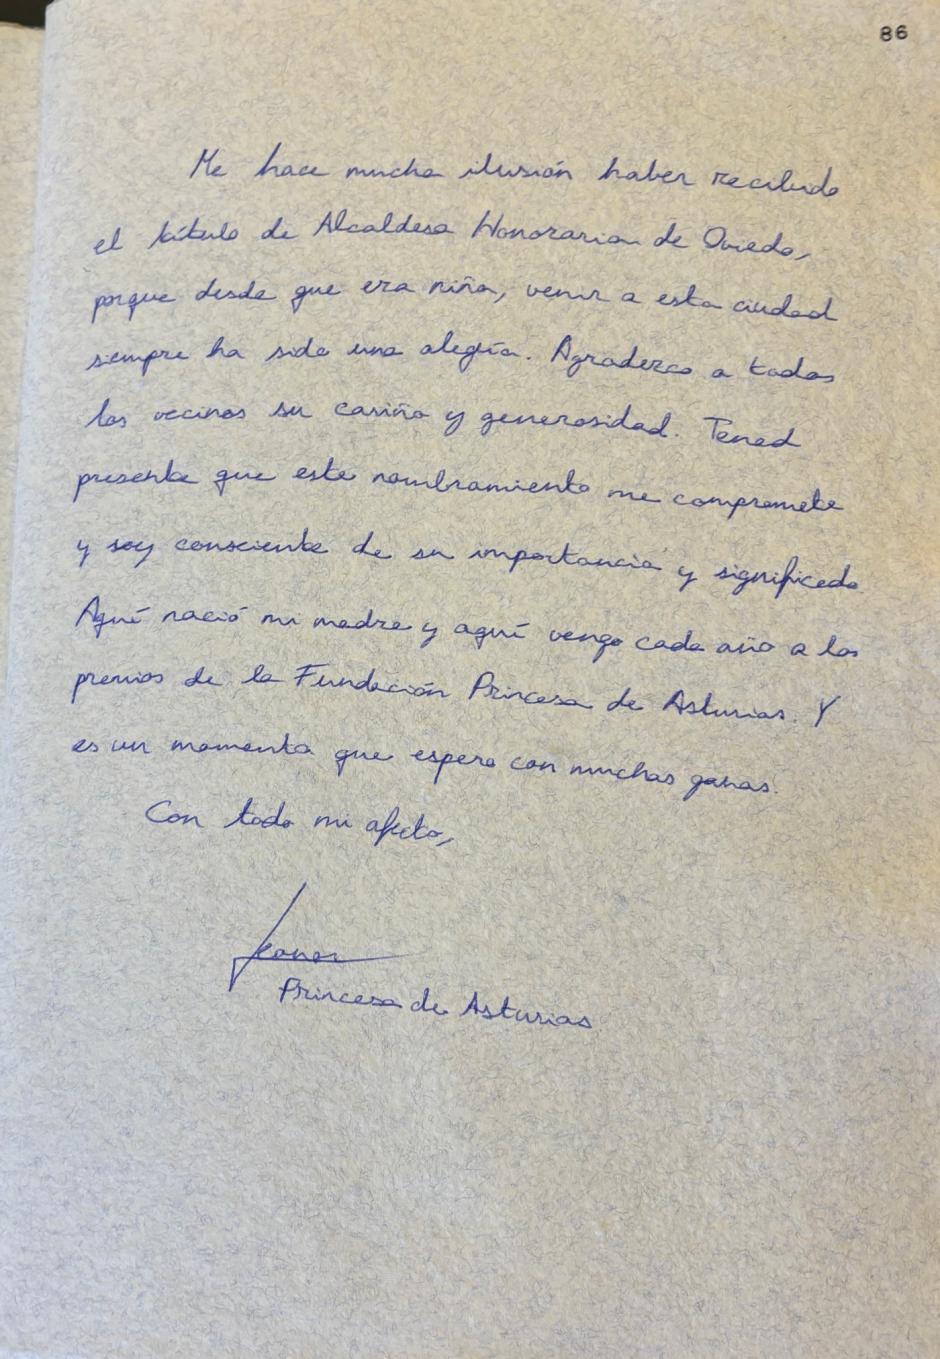 86
Me hace mucha ilusión haber recibido
el título de Alcaldesa Honoraria de Oviedo,
porque desde que era niña, venir a esta ciudad
siempre ha sido una alegría. Agradezco a todos
los vecinos su cariño y generosidad. Tened
presente que este nombramiento me compromete
y soy consciente de su importancia y significado.
Aquí nació mi madre y aquí vengo cada año a los
premios de la Fundación Princesa de Asturias. Y
es un momento que espero con muchas ganas.
Con todo mi afecto,
Leonor
Princesa de Asturias